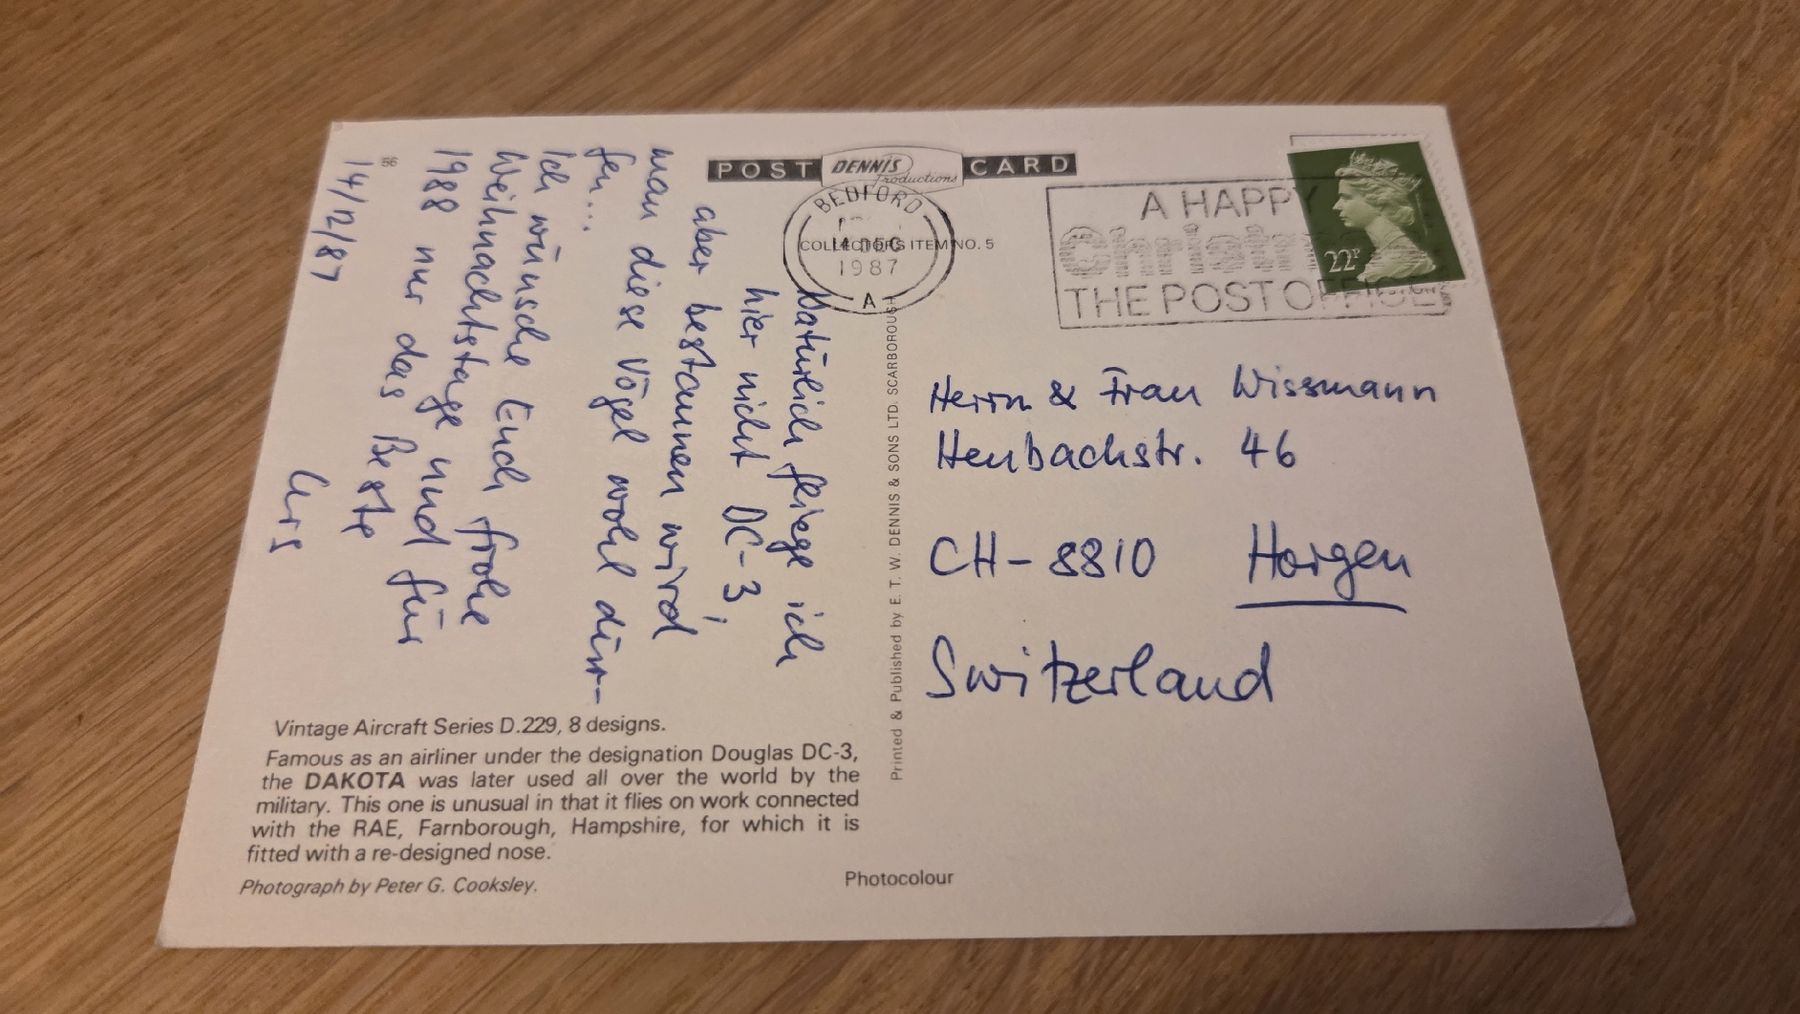 56
POST DENNIS Productions CARD
COLLECTORS ITEM NO. 5
BEDFORD
14 DEC
1987
A
A HAPPY
Christmas
THE POST OFFICE
22P
Natürlich fliege ich
hier nicht DC-3,
aber bestaunen wird
man diese Vögel wohl dür-
fen...
Ich wünsche Euch frohe
Weihnachtstage und für
1988 nur das Beste
14/12/87
Urs
Printed & Published by E. T. W. DENNIS & SONS LTD. SCARBOROUGH
Herrn & Frau Wissmann
Heubachstr. 46
CH-8810 Horgen
Switzerland
Vintage Aircraft Series D.229, 8 designs.
Famous as an airliner under the designation Douglas DC-3,
the DAKOTA was later used all over the world by the
military. This one is unusual in that it flies on work connected
with the RAE, Farnborough, Hampshire, for which it is
fitted with a re-designed nose.
Photograph by Peter G. Cooksley.
Photocolour